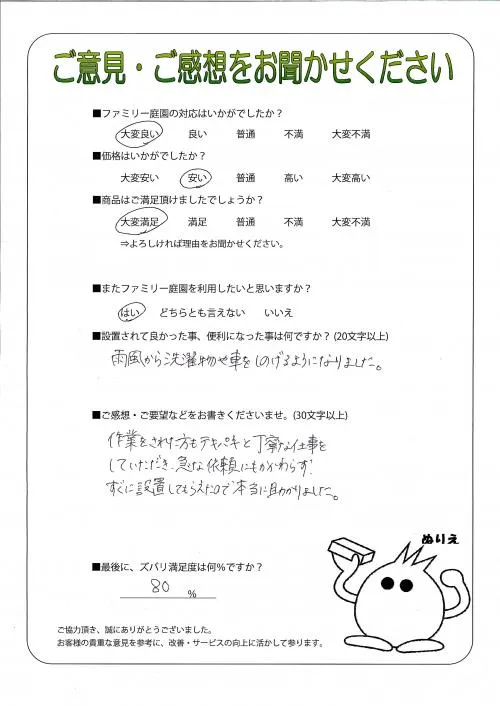 ご意見・ご感想をお聞かせください
■ファミリー庭園の対応はいかがでしたか？
大変良い 良い 普通 不満 大変不満
■価格はいかがでしたか？
大変安い 安い 普通 高い 大変高い
■商品はご満足頂けましたでしょうか？
大変満足 満足 普通 不満 大変不満
⇒よろしければ理由をお聞かせください。
■またファミリー庭園を利用したいと思いますか？
はい どちらとも言えない いいえ
■設置されて良かった事、便利になった事は何ですか？(20文字以上)
雨風から洗濯物や車をしのげるようになりました。
■ご感想・ご要望などをお書きくださいませ。(30文字以上)
作業をされた方もテキパキと丁寧な仕事を
していただき、急な依頼にもかかわらず！
すぐに設置してもらえたので本当に助かりました。
ぬりえ
■最後に、ズバリ満足度は何％ですか？
80 ％
ご協力頂き、誠にありがとうございました。
お客様の貴重な意見を参考に、改善・サービスの向上に活かして参ります。